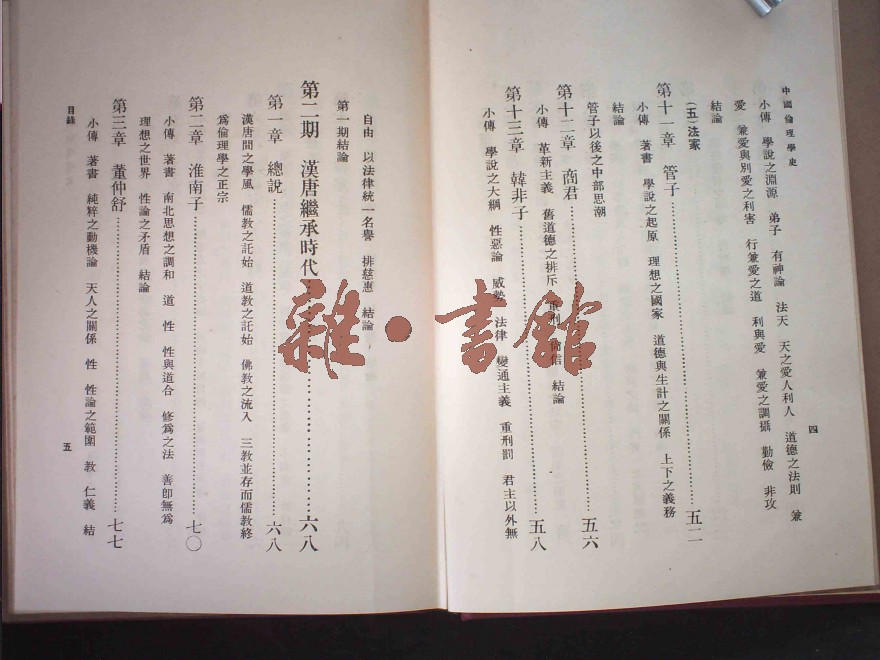 中國倫理學史
四
小傳 學說之淵源 弟子 有神論 法天 天之愛人利人 道德之法則 兼
愛 兼愛與別愛之利害 行兼愛之道 利與愛 兼愛之調攝 勤儉 非攻
結論
(五)法家
第十一章 管子……五二
小傳 著書 學說之起原 理想之國家 道德與生計之關係 上下之義務
結論
管子以後之中部思潮
第十二章 商君……五六
小傳 革新主義 舊道德之排斥 重刑 尚信 結論
第十三章 韓非子……五八
小傳 學說之大綱 性惡論 威勢 法律 變通主義 重刑罰 君主以外無
自由 以法律統一名譽 排慈惠 結論
第一期結論
第二期 漢唐繼承時代……六八
第一章 總說……六八
漢唐間之學風 儒教之託始 道教之託始 佛教之流入 三教並存而儒教終
爲倫理學之正宗
第二章 淮南子……七〇
小傳 著書 南北思想之調和 道 性 性與道合 修爲之法 善卽無爲
理想之世界 性論之矛盾 結論
第三章 董仲舒……七七
小傳 著書 純粹之動機論 天人之關係 性 性論之範圍 教 仁義 結
目錄
五
雜·書館